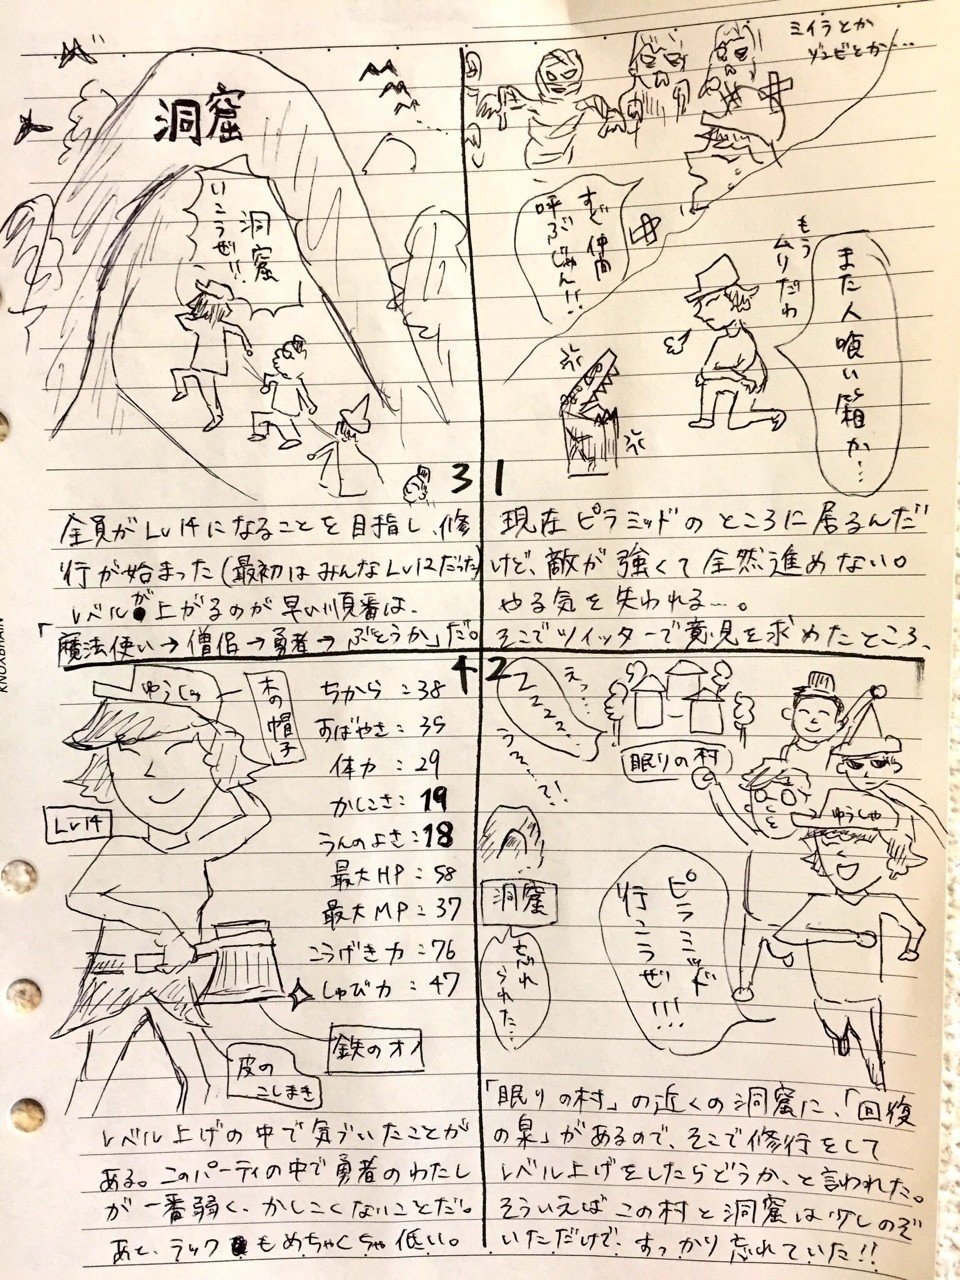 1
ミイラとか
ゾンビとか…
すぐ仲間
呼ぶじゃん!!
また人喰い箱か…
もう
ムリだわ
現在ピラミッドのところに居るんだ
けど、敵が強くて全然進めない。
やる気を失われる…。
そこでツイッターで意見を求めたところ、
2
えっ…
ZZZZZ…
うそ…?!
眠りの村
ゆうしゃ
洞窟
忘れ
られた…
ピラミッド
行こうぜ!!!
「眠りの村」の近くの洞窟に、「回復
の泉」があるので、そこで修行をして
レベル上げをしたらどうか、と言われた。
そういえばこの村と洞窟は少しのぞ
いただけで、すっかり忘れていた!!
3
洞窟
洞窟
いこうぜ!!
全員がLv14になることを目指し、修
行が始まった(最初はみんなLv12だった)
レベルが上がるのが早い順番は、
「魔法使い→僧侶→勇者→ぶとうか」だ。
4
ゆうしゃ
木の帽子
Lv14
ちから:38
すばやさ:35
体力:29
かしこさ:19
うんのよさ:18
最大HP:58
最大MP:37
こうげき力:76
しゅび力:47
鉄のオノ
皮の
こしまき
レベル上げの中で気づいたことが
ある。このパーティの中で勇者のわたし
が一番弱く、かしこくないことだ。
あと、ラックもめちゃくちゃ低い。